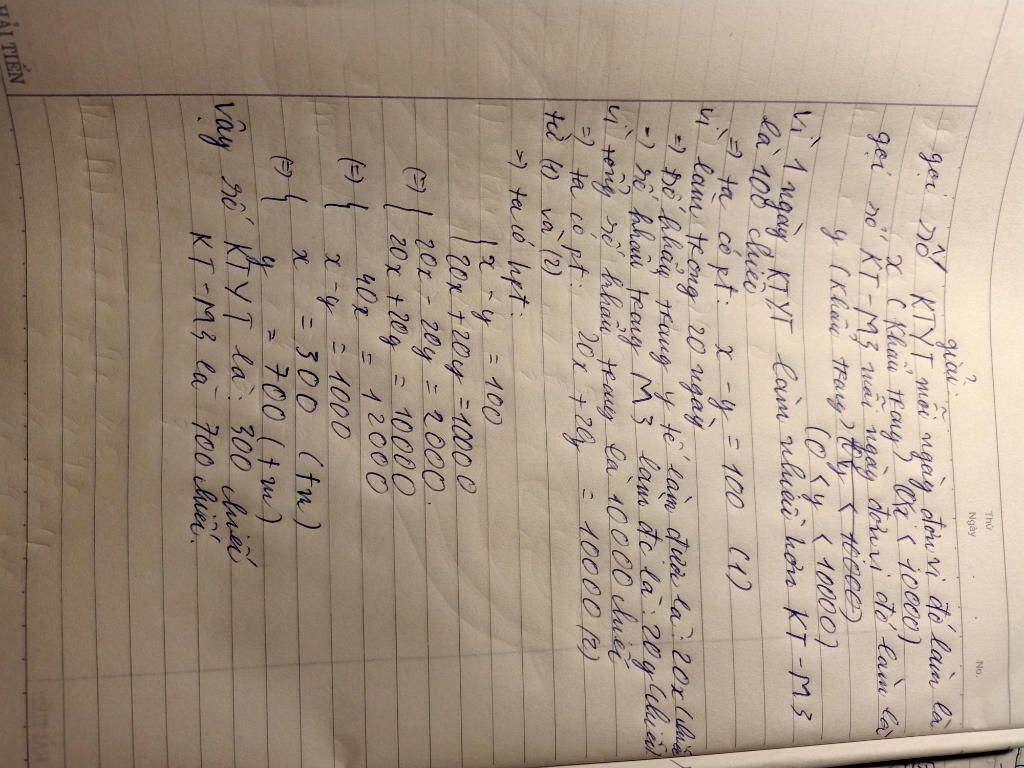 HẢI TIẾN
Thứ
Ngày
No.
giải.
gọi số KTYT mỗi ngày đơn vị đó làm là
x (khẩu trang) 0<x<10000)
gọi số KT-M3 mỗi ngày đơn vị đó làm là
y (khẩu trang) (0<y<10000)
Vì 1 ngày KTYT làm nhiều hơn KT-M3
là 100 chiếc
=> ta có pt: x - y = 100 (1)
vì làm trong 20 ngày
=> số khẩu trang y tế làm được là: 20x (chiếc)
=> số khẩu trang M3 làm đc là: 20y (chiếc)
vì tổng số khẩu trang là 10000 chiếc
=> ta có pt: 20x + 20y = 10000 (2)
từ (1) và (2)
=> ta có hpt:
{ x - y = 100
20x + 20y = 10000
(=) { 20x - 20y = 2000.
20x + 20y = 10000
(=) { 40x = 12000
x - y = 1000
(=) { x = 300 (tm)
y = 700 (tm)
Vậy số KTYT là: 300 chiếc
KT-M3 là 700 chiếc.